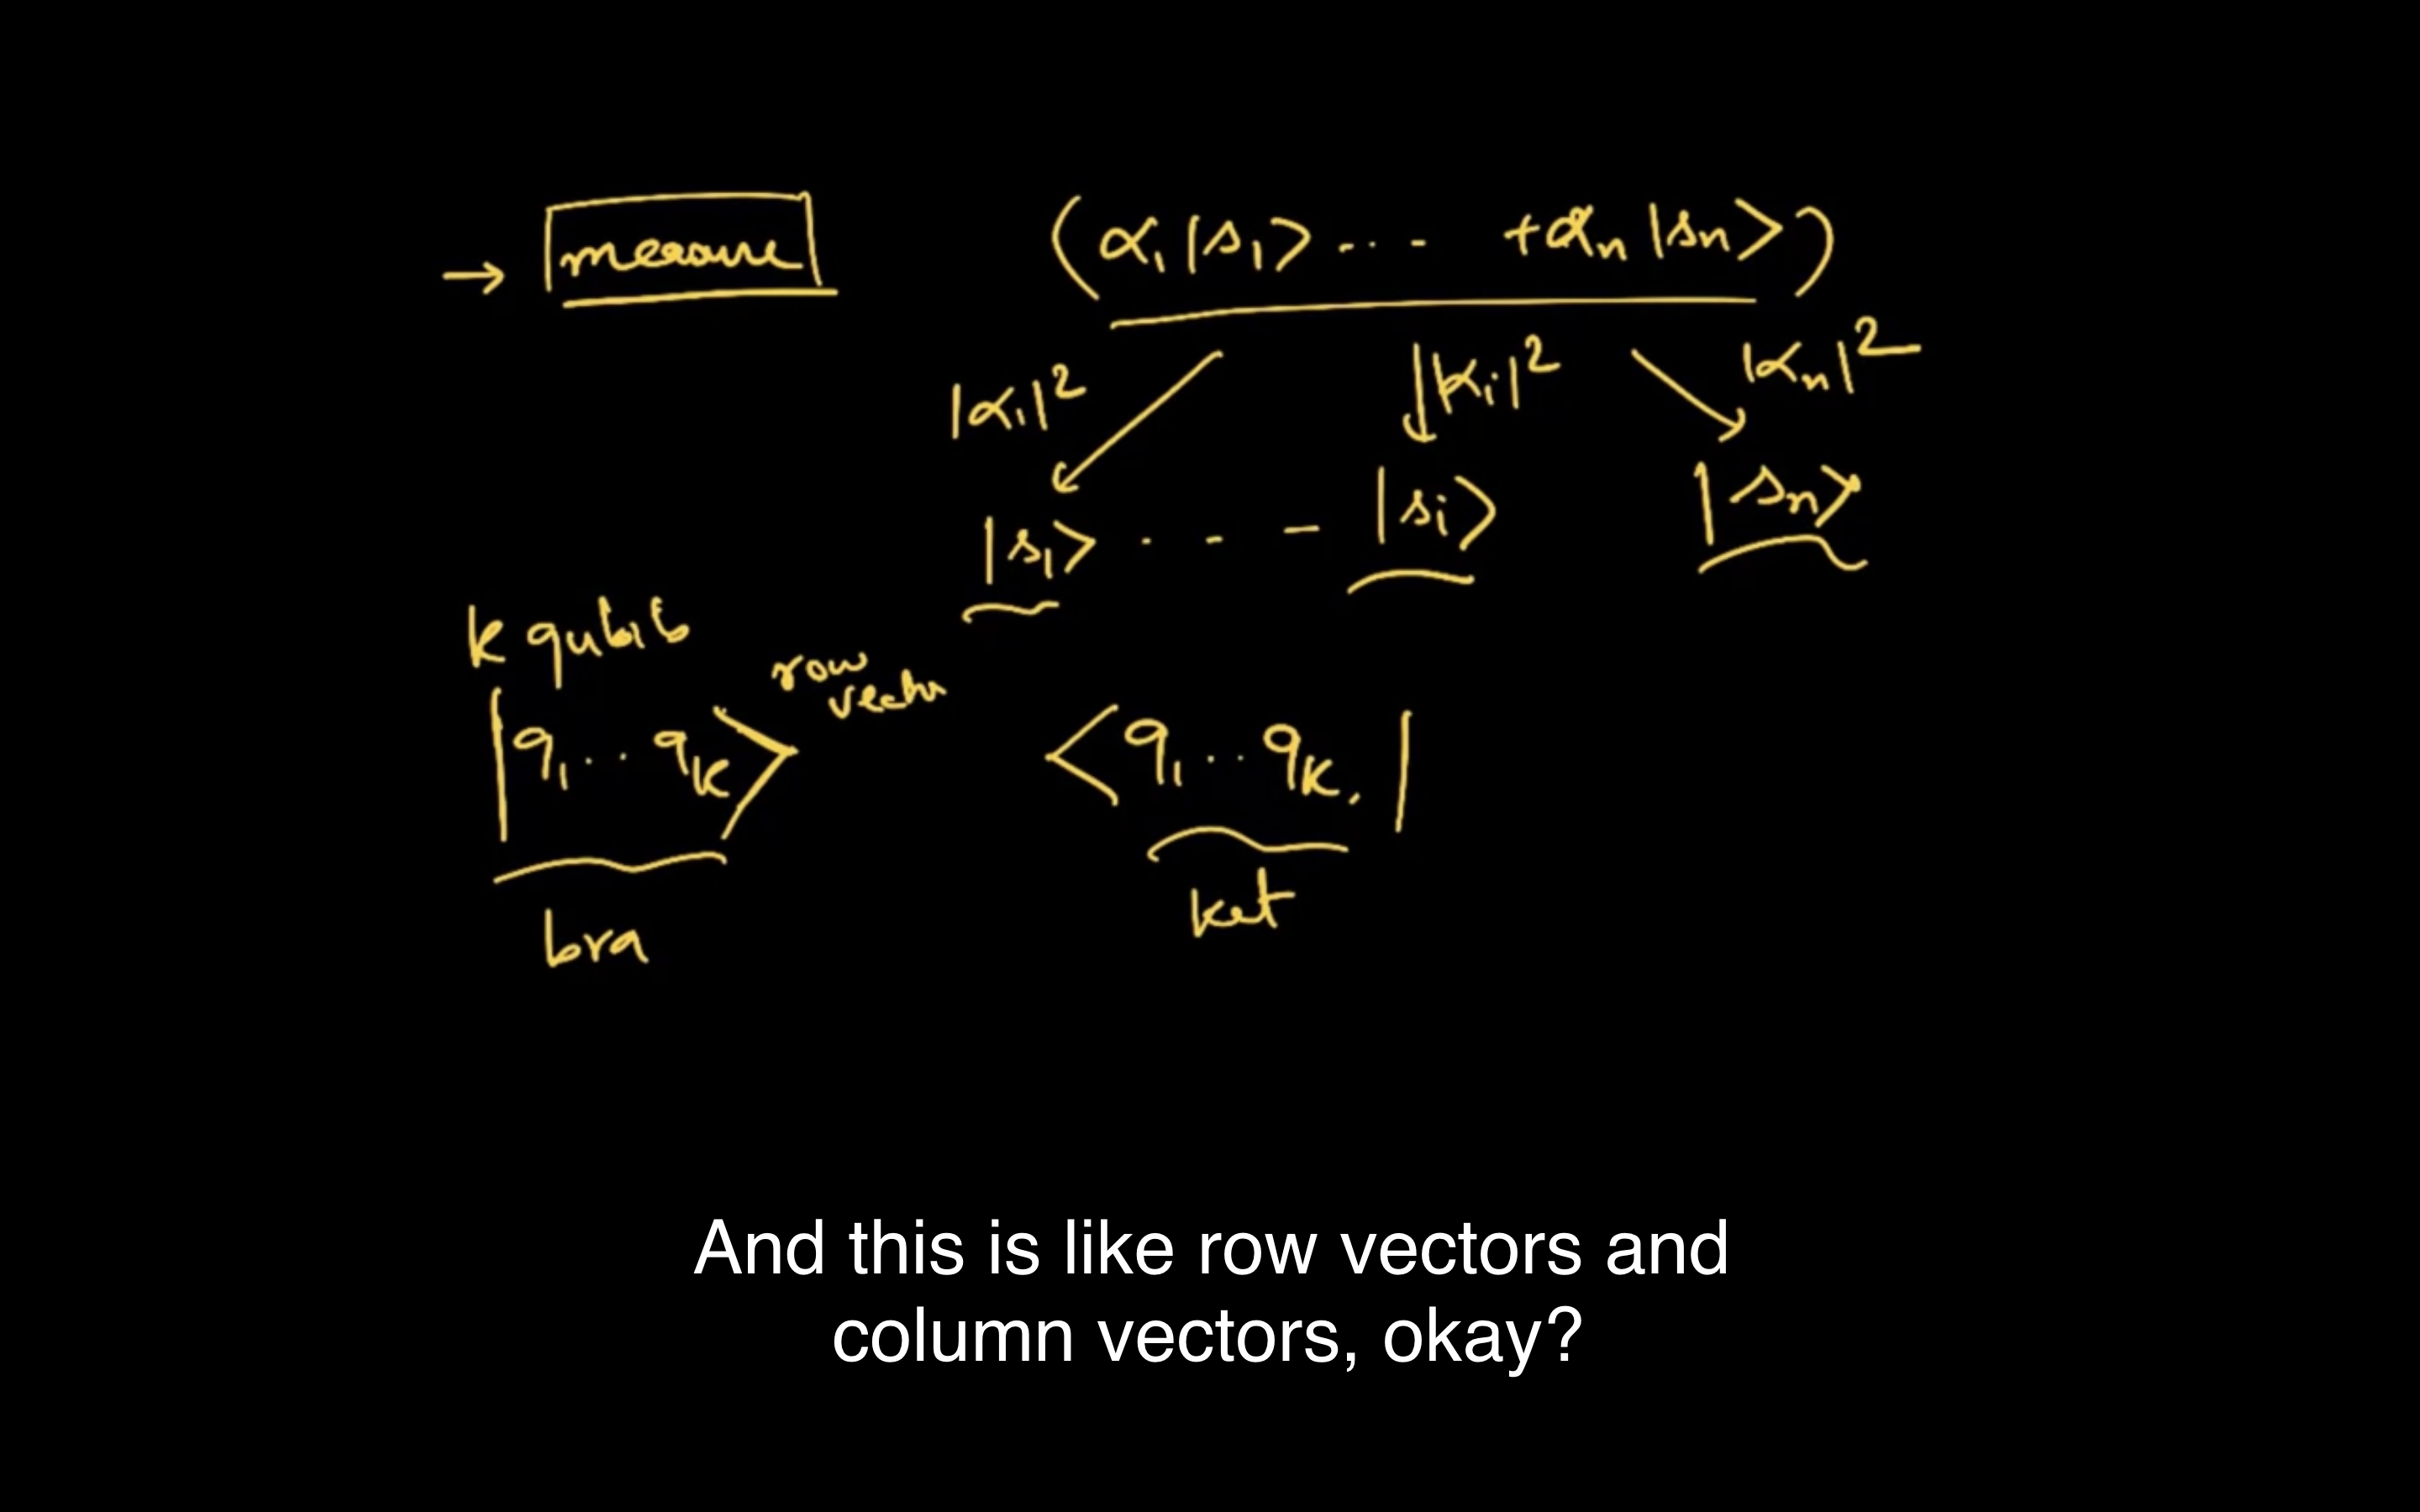 → measure (α₁|s₁> ... +αₙ|sₙ>)
|α₁|² |αᵢ|² |αₙ|²
|s₁> . - - |sᵢ> |sₙ>
k qubits
row
vector
|q₁..qₖ> <q₁..qₖ.|
bra ket
And this is like row vectors and
column vectors, okay?